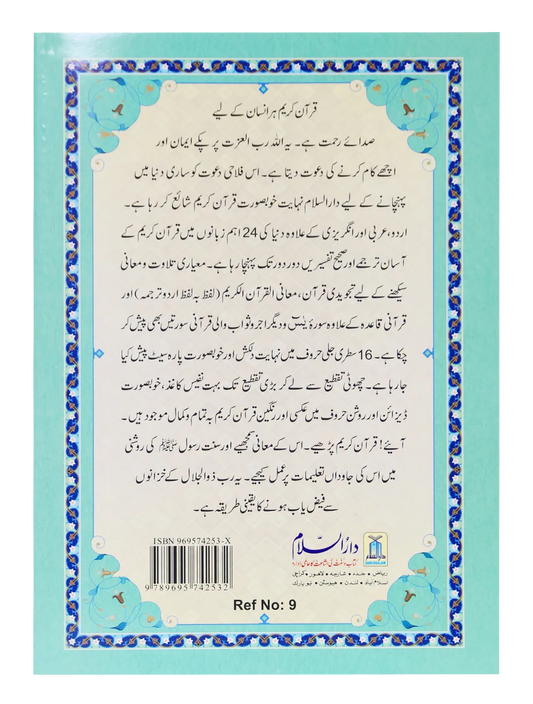 قرآن کریم ہر انسان کے لیے
صدائے رحمت ہے۔ یہ اللہ رب العزت پر پکے ایمان اور
اچھے کام کرنے کی دعوت دیتا ہے۔ اس فلاحی دعوت کو ساری دنیا میں
پہنچانے کے لیے دارالسلام نہایت خوبصورت قرآن کریم شائع کر رہا ہے۔
اردو، عربی اور انگریزی کے علاوہ دنیا کی 24 اہم زبانوں میں قرآن کریم کے
آسان ترجمے اور صحیح تفسیریں دور دور تک پہنچا رہا ہے۔ معیاری تلاوت و معانی
سیکھنے کے لیے تجویدی قرآن، معانی القرآن الکریم (لفظ بہ لفظ اردو ترجمہ) اور
قرآنی قاعدہ کے علاوہ سورۂ یٰسٓ و دیگر اجر و ثواب والی قرآنی سورتیں بھی پیش کر
چکا ہے۔ 16 سطری جلی حروف میں نہایت دلکش اور خوبصورت پارہ سیٹ پیش کیا
جا رہا ہے۔ چھوٹی تقطیع سے لے کر بڑی تقطیع تک بہت نفیس کاغذ، خوبصورت
ڈیزائن اور روشن حروف میں عکسی اور رنگین قرآن کریم بہ تمام و کمال موجود ہیں۔
آیئے! قرآن کریم پڑھیے۔ اس کے معانی سمجھیے اور سنت رسول ﷺ کی روشنی
میں اس کی جاوداں تعلیمات پر عمل کیجیے۔ یہ رب ذوالجلال کے خزانوں
سے فیض یاب ہونے کا یقینی طریقہ ہے۔
ISBN 969574253-X
9 789695 742532
دارُالسلام
کتاب و سنت کی اشاعت کا عالمی ادارہ
ریاض • جدہ • شارجہ • لاہور • کراچی
اسلام آباد • لندن • ہیوسٹن • نیو یارک
Ref No: 9